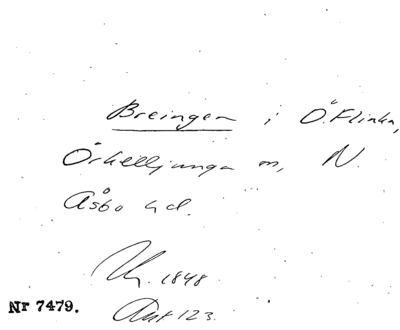 Breingen i Ö. Flinka,
Örkelljunga sn, N.
Åsbo hd.
1848
Nr 7479.
Ant 123.